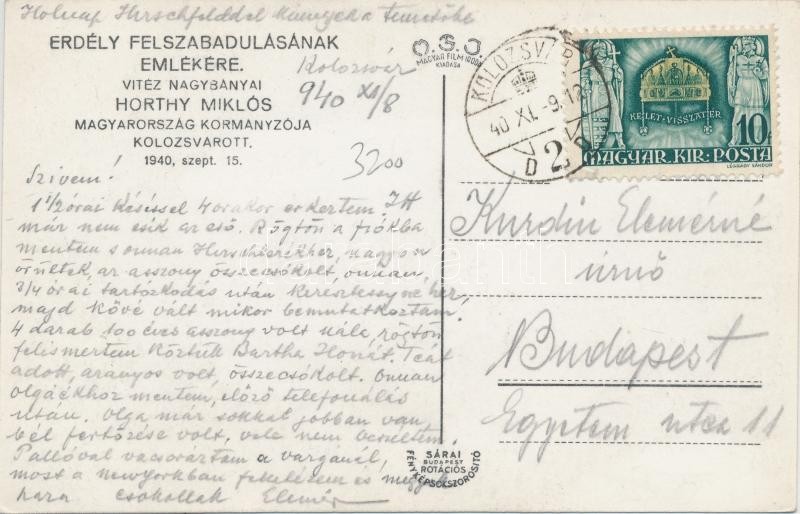 Holnap Hirschfelddel kimegyek a temetőbe
ERDÉLY FELSZABADULÁSÁNAK
EMLÉKÉRE.
VITÉZ NAGYBÁNYAI
HORTHY MIKLÓS
MAGYARORSZÁG KORMÁNYZÓJA
KOLOZSVÁROTT.
1940, szept. 15.
Kolozsvár
940 XI/8
3200
Szivem!
1 1/2 órai késéssel 4 órakor érkeztem. Itt
már nem esik az eső. Rögtön a fiókba
mentem s onnan, nagyon
örültek, az asszony összecsókolt, onnan
3/4 órai tartózkodás után
majd kővé vált mikor bemutatkoztam.
4 darab 100 éves asszony volt nála, rögtön
felismertem köztük Bartha Ilonát. Teát
adott, aranyos volt, összecsókolt. Onnan
Olgáékhoz mentem, előző telefonálás
után. Olga már sokkal jobban van
bél fertőzése volt, vele nem beszéltem.
Pallóval vacsoráztam a
most a newyorkban és megyek
haza csókollak Elemér
M.S.J.
MAGYAR FILM IRODA
KIADÁSA
KOLOZSVÁR
40 XI. -9. 12
2
D
KELET-VISSZATÉR
10
MAGYAR·KIR·POSTA
LÉGRÁDY SÁNDOR
Kurdin Elemérné
úrnő
Budapest
Egyetem utca 11
SÁRAI
BUDAPEST
ROTÁCIÓS
FÉNYKÉPSOKSZOROSÍTÓ